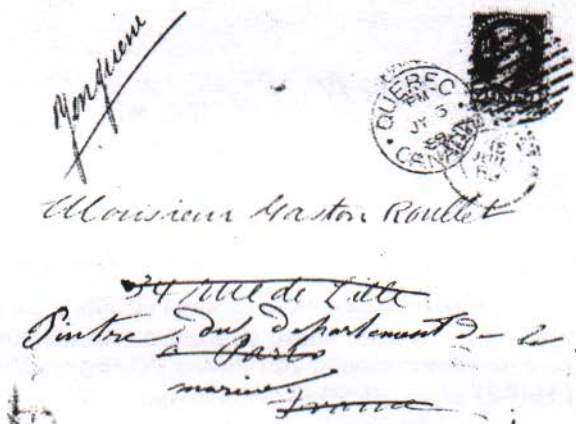 QUEBEC
PM
JY 5
89
CANADA
Monsieur Gaston Roullet
34 rue de Lille
Peintre du département de la
à Paris
marine
France